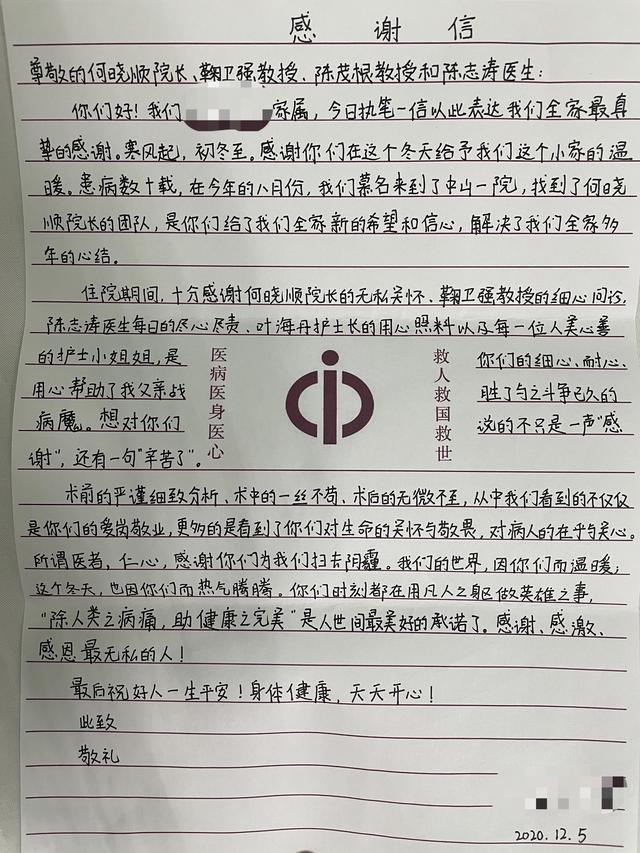 感谢信
尊敬的何晓顺院长、鞠卫强教授、陈茂根教授和陈志涛医生:
你们好!我们家属,今日执笔一信以此表达我们全家最真
挚的感谢。寒风起,初冬至。感谢你们在这个冬天给予我们这个小家的温
暖。患病数十载,在今年的八月份,我们慕名来到了中山一院,找到了何晓
顺院长的团队,是你们给了我们全家新的希望和信心,解决了我们全家多
年的心结。
住院期间,十分感谢何晓顺院长的无私关怀、鞠卫强教授的细心问诊、
陈志涛医生每日的尽心尽责、叶海丹护士长的用心照料以及每一位人美心善
的护士小姐姐,是你们的细心、耐心、
用心帮助了我父亲战胜了与之斗争已久的
病魔。想对你们说的不只是一声“感
谢”,还有一句“辛苦了”。
医病医身医心
救人救国救世
术前的严谨细致分析、术中的一丝不苟、术后的无微不至,从中我们看到的不仅仅
是你们的爱岗敬业,更多的是看到了你们对生命的关怀与敬畏,对病人的在乎与关心。
所谓医者,仁心,感谢你们为我们扫去阴霾。我们的世界,因你们而温暖;
这个冬天,也因你们而热气腾腾。你们时刻都在用凡人之躯做英雄之事,
“除人类之病痛,助健康之完美”是人世间最美好的承诺了。感谢、感激、
感恩最无私的人!
最后祝好人一生平安!身体健康,天天开心!
此致
敬礼
2020.12.5